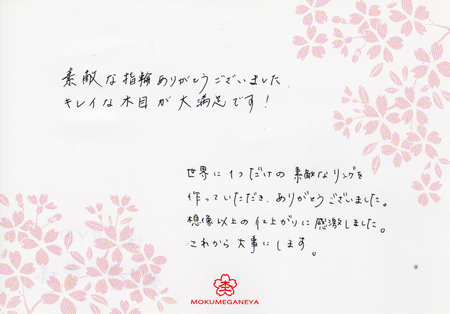 素敵な指輪ありがとうございました
キレイな木目が大満足です!
世界に1つだけの素敵なリングを
作っていただき、ありがとうございました。
想像以上の仕上がりに感激しました。
これから大事にします。
MOKUMEGANEYA